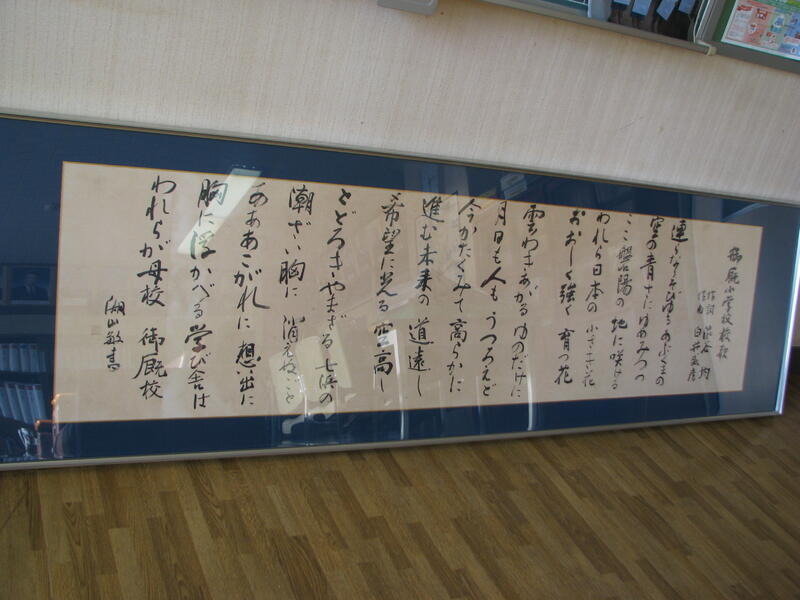 御厩小学校校歌
作詞 渋谷 均
作曲 白井
連なりそびゆるあぶくまの
空の青さにゆめみつつ
ここ磐陽の地に咲ける
われら日本の小さき花
おおしく強く育つ花
雲わきあがるゆのだけに
月日も人もうつろえど
今かたくみて高らかに
進む未来の道遠し
希望に光る空高し
とどろきやまざる七浜の
潮ざい胸に消えねごと
あああこがれに想い出に
胸に浮かべる学び舎は
われらが母校御厩校
敏書